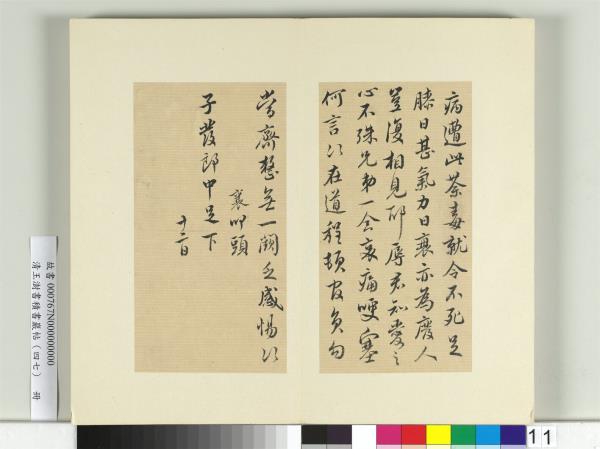 病遭此荼毒就令不死足
膝日甚氣力日衰亦為廢人
豈復相見邪辱君知愛之
心不殊兄弟一會哀痛哽塞
何言何言在道程頓皆負勾
當齊整無一闕乏感惕
襄叩頭
子發郎中足下
十二日
故書000767N000000000
清王澍書積書巖帖(四七) 冊
11